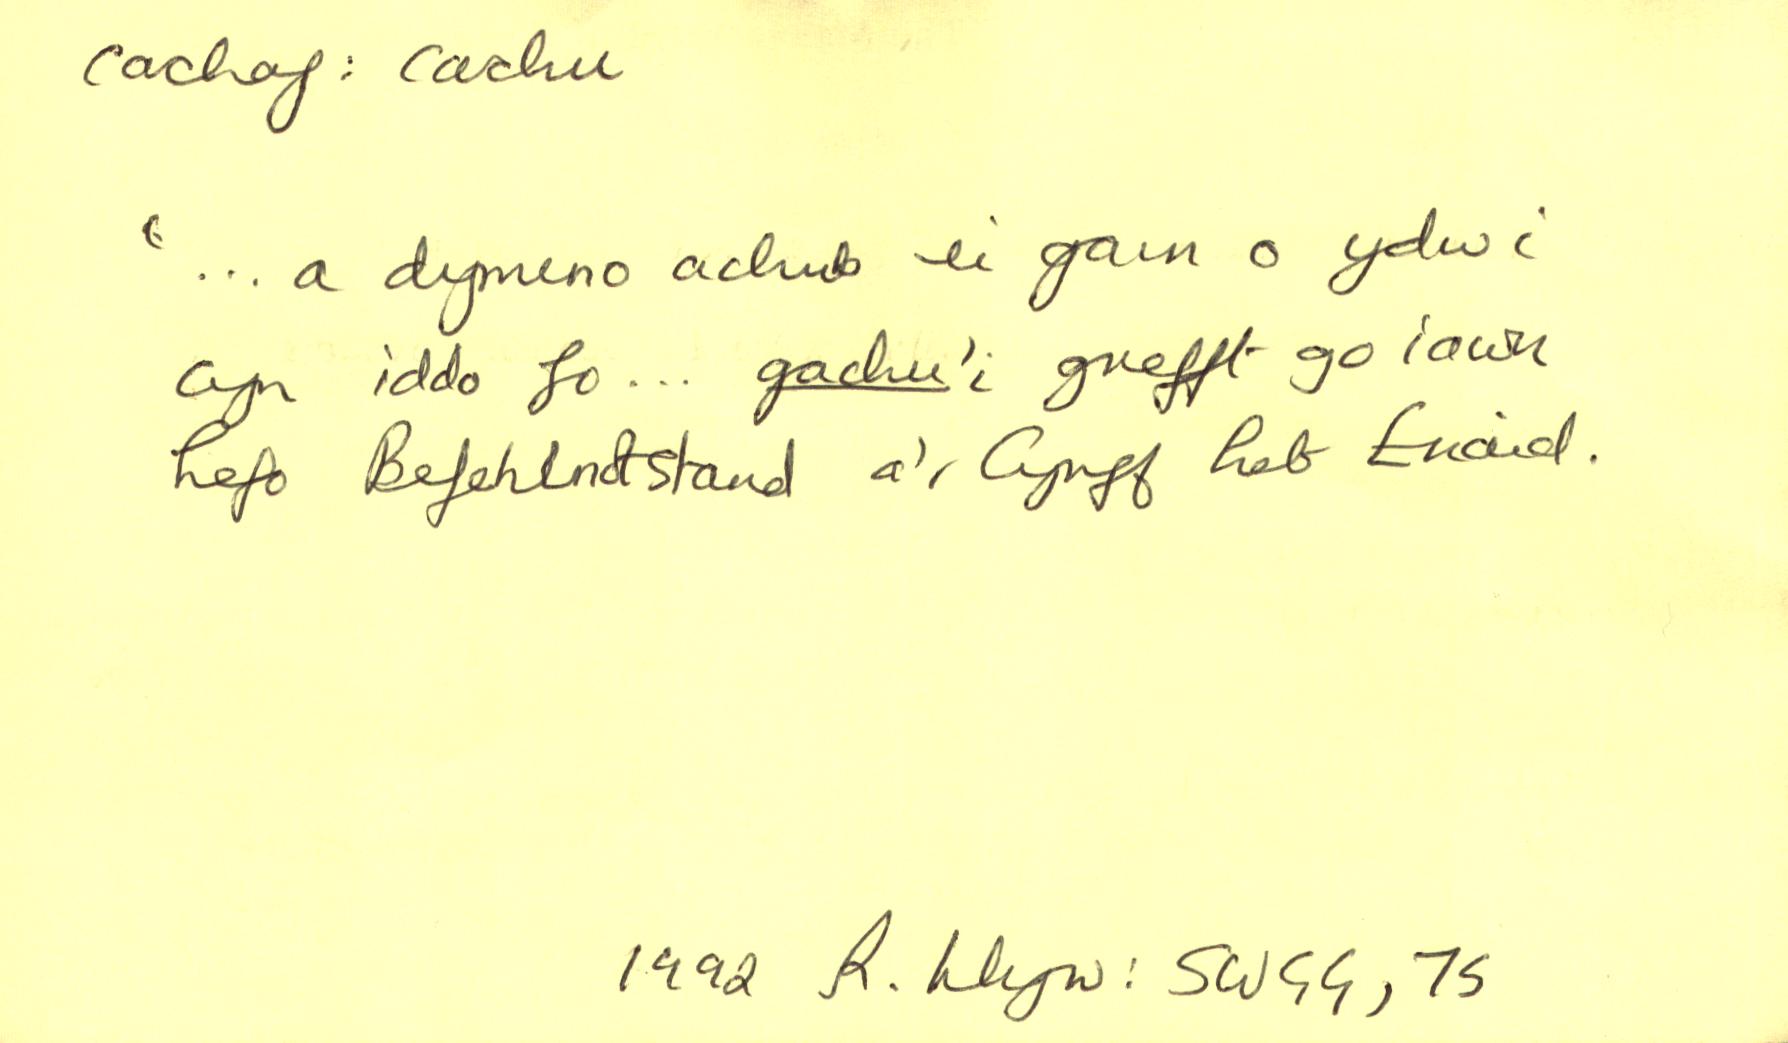 cachaf: cachu
'... a dymuno achub ei gam o ydw i
cyn iddo fo... gachu'i grefft go iawn
hefo Befehlnotstand a'r Cynff heb Enaid.
1992 R. Llwyn: SWGG, 75